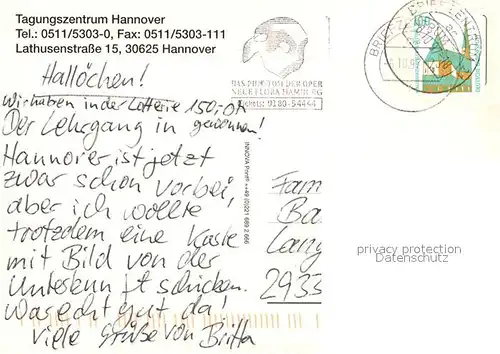 Tagungszentrum Hannover
Tel.: 0511/5303-0, Fax: 0511/5303-111
Lathusenstraße 15, 30625 Hannover
Hallöchen!
Wir haben in der Lotterie 150,- DM
gewonnen!
Der Lehrgang in
Hannover ist jetzt
zwar schon vorbei,
aber ich wollte
trotzdem eine Karte
mit Bild von der
Unterkunft schicken.
War echt gut da!
Viele Grüße von Britta
DAS PHANTOM DER OPER
NEUE FLORA HAMBURG
Tickets: 0180-54444
INNOVA Print® ++49 (0)221 689 2 666
BRIEFZENTRUM
100
Fam
Ba
Lang
2933
privacy protection
Datenschutz